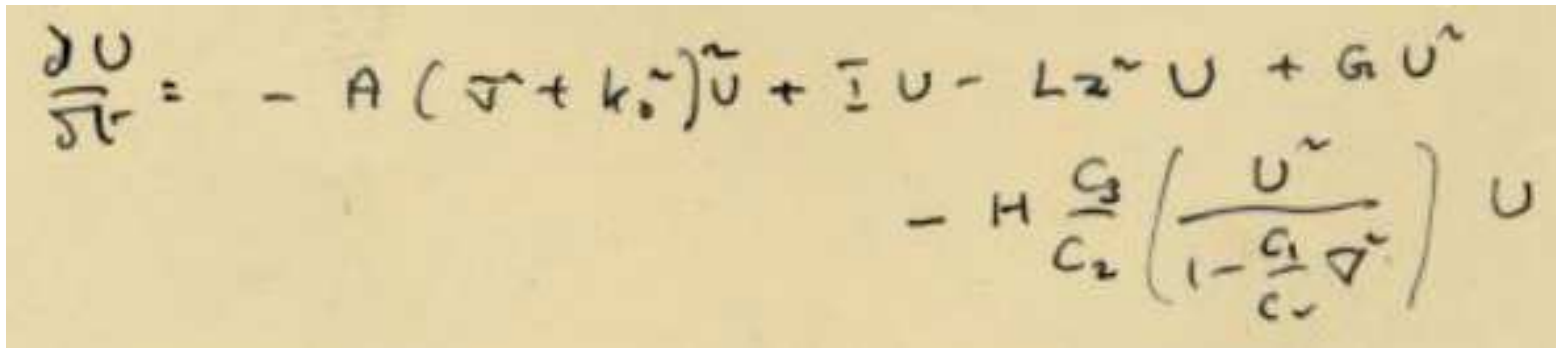 ∂U/∂t = - A (∇² + k₀²)² U + I U - L z² U + G U²
- H C₃/C₂ (U² / (1 - C₁/C₂ ∇²)) U